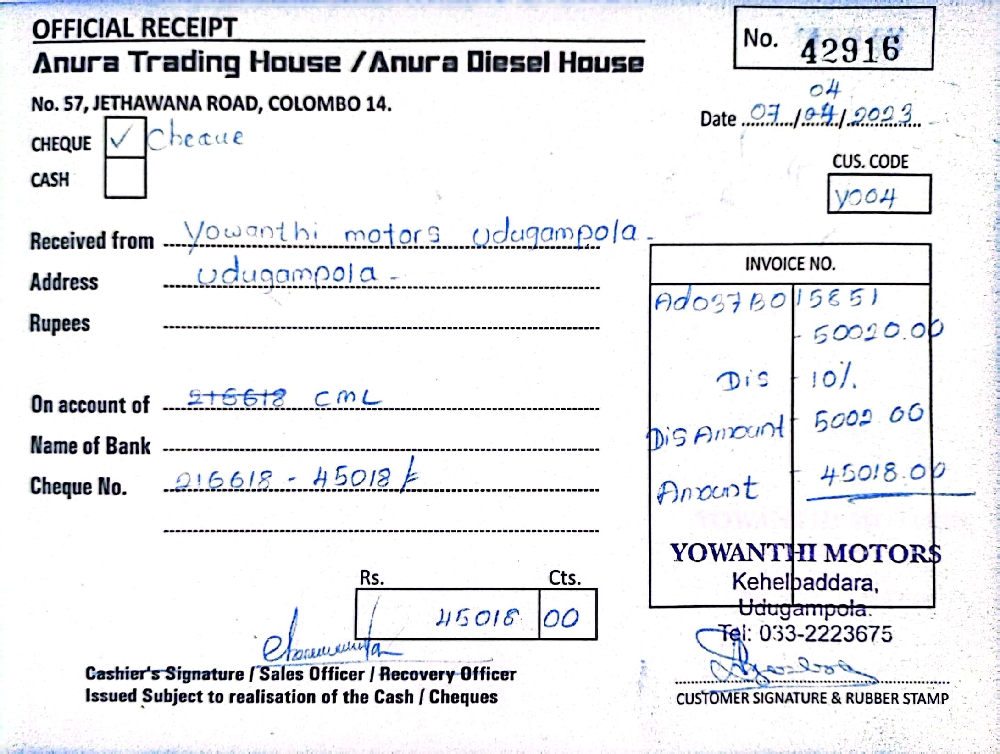 OFFICIAL RECEIPT
No. 42916
Anura Trading House / Anura Diesel House
No. 57, JETHAWANA ROAD, COLOMBO 14.
04
Date 07/04/2023
CHEQUE ✓ Cheque
CASH
CUS. CODE
Y004
Received from Yowanthi motors udugampola -
Address udugampola -
Rupees
On account of 216618 CML
Name of Bank
Cheque No. 216618 - 45018/-
INVOICE NO.
Ad037B015851
- 50020.00
Dis - 10%
Dis Amount - 5002 00
Amount - 45018.00
YOWANTHI MOTORS
Kehelbaddara,
Udugampola.
Tel: 033-2223675
Rs. Cts.
45018 00
Cashier's Signature / Sales Officer / Recovery Officer
Issued Subject to realisation of the Cash / Cheques
CUSTOMER SIGNATURE & RUBBER STAMP